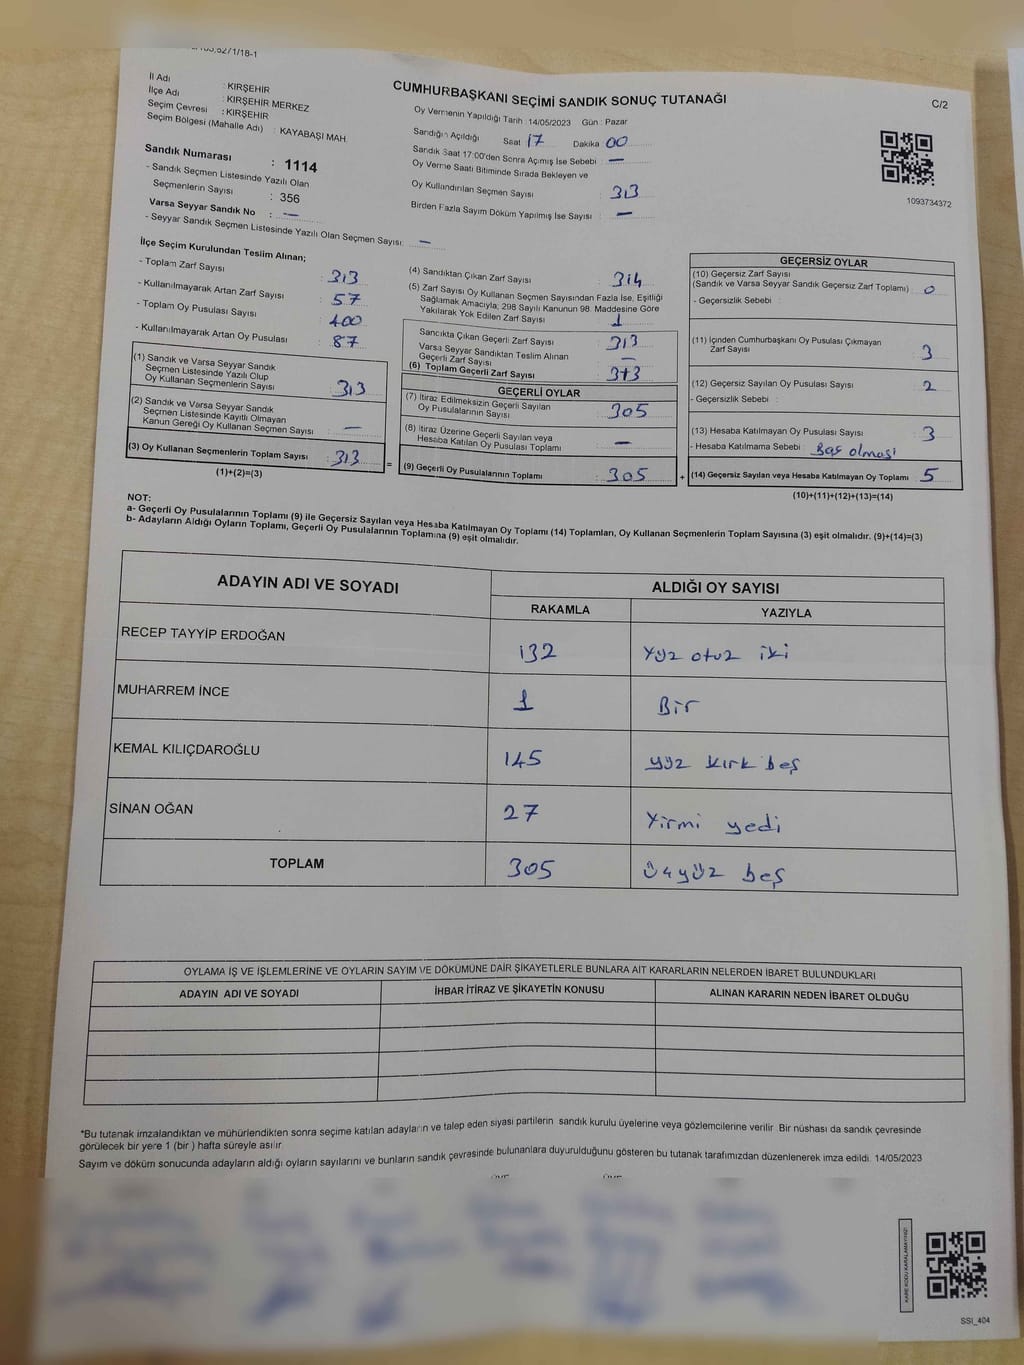 İl Adı : KIRŞEHİR
İlçe Adı : KIRŞEHİR MERKEZ
Seçim Çevresi : KIRŞEHİR
Seçim Bölgesi (Mahalle Adı) : KAYABAŞI MAH.
Sandık Numarası : 1114
- Sandık Seçmen Listesinde Yazılı Olan
Seçmenlerin Sayısı : 356
Varsa Seyyar Sandık No : —
- Seyyar Sandık Seçmen Listesinde Yazılı Olan Seçmen Sayısı: —
CUMHURBAŞKANI SEÇİMİ SANDIK SONUÇ TUTANAĞI
Oy Vermenin Yapıldığı Tarih : 14/05/2023 Gün : Pazar
Sandığın Açıldığı Saat 17 Dakika 00
Sandık Saat 17:00'den Sonra Açımış İse Sebebi : —
Oy Verme Saati Bitiminde Sırada Bekleyen ve
Oy Kullandırılan Seçmen Sayısı : 313
Birden Fazla Sayım Döküm Yapılmış İse Sayısı : —
C/2
1093734372
İlçe Seçim Kurulundan Teslim Alınan;
- Toplam Zarf Sayısı : 313
- Kullanılmayarak Artan Zarf Sayısı : 57
- Toplam Oy Pusulası Sayısı : 400
- Kullanılmayarak Artan Oy Pusulası : 87
(1) Sandık ve Varsa Seyyar Sandık
Seçmen Listesinde Yazılı Olup
Oy Kullanan Seçmenlerin Sayısı : 313
(2) Sandık ve Varsa Seyyar Sandık
Seçmen Listesinde Kayıtlı Olmayan
Kanun Gereği Oy Kullanan Seçmen Sayısı : —
(3) Oy Kullanan Seçmenlerin Toplam Sayısı : 313
(1)+(2)=(3)
=
(4) Sandıktan Çıkan Zarf Sayısı : 314
(5) Zarf Sayısı Oy Kullanan Seçmen Sayısından Fazla İse, Eşitliği
Sağlamak Amacıyla, 298 Sayılı Kanunun 98. Maddesine Göre
Yakılarak Yok Edilen Zarf Sayısı : 1
Sandıkta Çıkan Geçerli Zarf Sayısı : 313
Varsa Seyyar Sandıktan Teslim Alınan
Geçerli Zarf Sayısı : —
(6) Toplam Geçerli Zarf Sayısı : 313
GEÇERLİ OYLAR
(7) İtiraz Edilmeksizin Geçerli Sayılan
Oy Pusulalarının Sayısı : 305
(8) İtiraz Üzerine Geçerli Sayılan veya
Hesaba Katılan Oy Pusulası Toplamı : —
(9) Geçerli Oy Pusulalarının Toplamı : 305
+
GEÇERSİZ OYLAR
(10) Geçersiz Zarf Sayısı
(Sandık ve Varsa Seyyar Sandık Geçersiz Zarf Toplamı) : 0
- Geçersizlik Sebebi :
(11) İçinden Cumhurbaşkanı Oy Pusulası Çıkmayan
Zarf Sayısı : 3
(12) Geçersiz Sayılan Oy Pusulası Sayısı : 2
- Geçersizlik Sebebi :
(13) Hesaba Katılmayan Oy Pusulası Sayısı : 3
- Hesaba Katılmama Sebebi : Boş olması
(14) Geçersiz Sayılan veya Hesaba Katılmayan Oy Toplamı : 5
(10)+(11)+(12)+(13)=(14)
NOT:
a- Geçerli Oy Pusulalarının Toplamı (9) ile Geçersiz Sayılan veya Hesaba Katılmayan Oy Toplamı (14) Toplamları, Oy Kullanan Seçmenlerin Toplam Sayısına (3) eşit olmalıdır. (9)+(14)=(3)
b- Adayların Aldığı Oyların Toplamı, Geçerli Oy Pusulalarının Toplamına (9) eşit olmalıdır.
ADAYIN ADI VE SOYADI ALDIĞI OY SAYISI
RAKAMLA YAZIYLA
RECEP TAYYİP ERDOĞAN 132 Yüz otuz iki
MUHARREM İNCE 1 Bir
KEMAL KILIÇDAROĞLU 145 yüz kırk beş
SİNAN OĞAN 27 Yirmi yedi
TOPLAM 305 üçyüz beş
OYLAMA İŞ VE İŞLEMLERİNE VE OYLARIN SAYIM VE DÖKÜMÜNE DAİR ŞİKAYETLERLE BUNLARA AİT KARARLARIN NELERDEN İBARET BULUNDUKLARI
ADAYIN ADI VE SOYADI İHBAR İTİRAZ VE ŞİKAYETİN KONUSU ALINAN KARARIN NEDEN İBARET OLDUĞU
*Bu tutanak imzalandıktan ve mühürlendikten sonra seçime katılan adayların ve talep eden siyasi partilerin sandık kurulu üyelerine veya gözlemcilerine verilir. Bir nüshası da sandık çevresinde
görülecek bir yere 1 (bir) hafta süreyle asılır.
Sayım ve döküm sonucunda adayların aldığı oyların sayılarını ve bunların sandık çevresinde bulunanlara duyurulduğunu gösteren bu tutanak tarafımızdan düzenlenerek imza edildi. 14/05/2023
KARE KODU KARALAMAYINIZ!
SSI_404